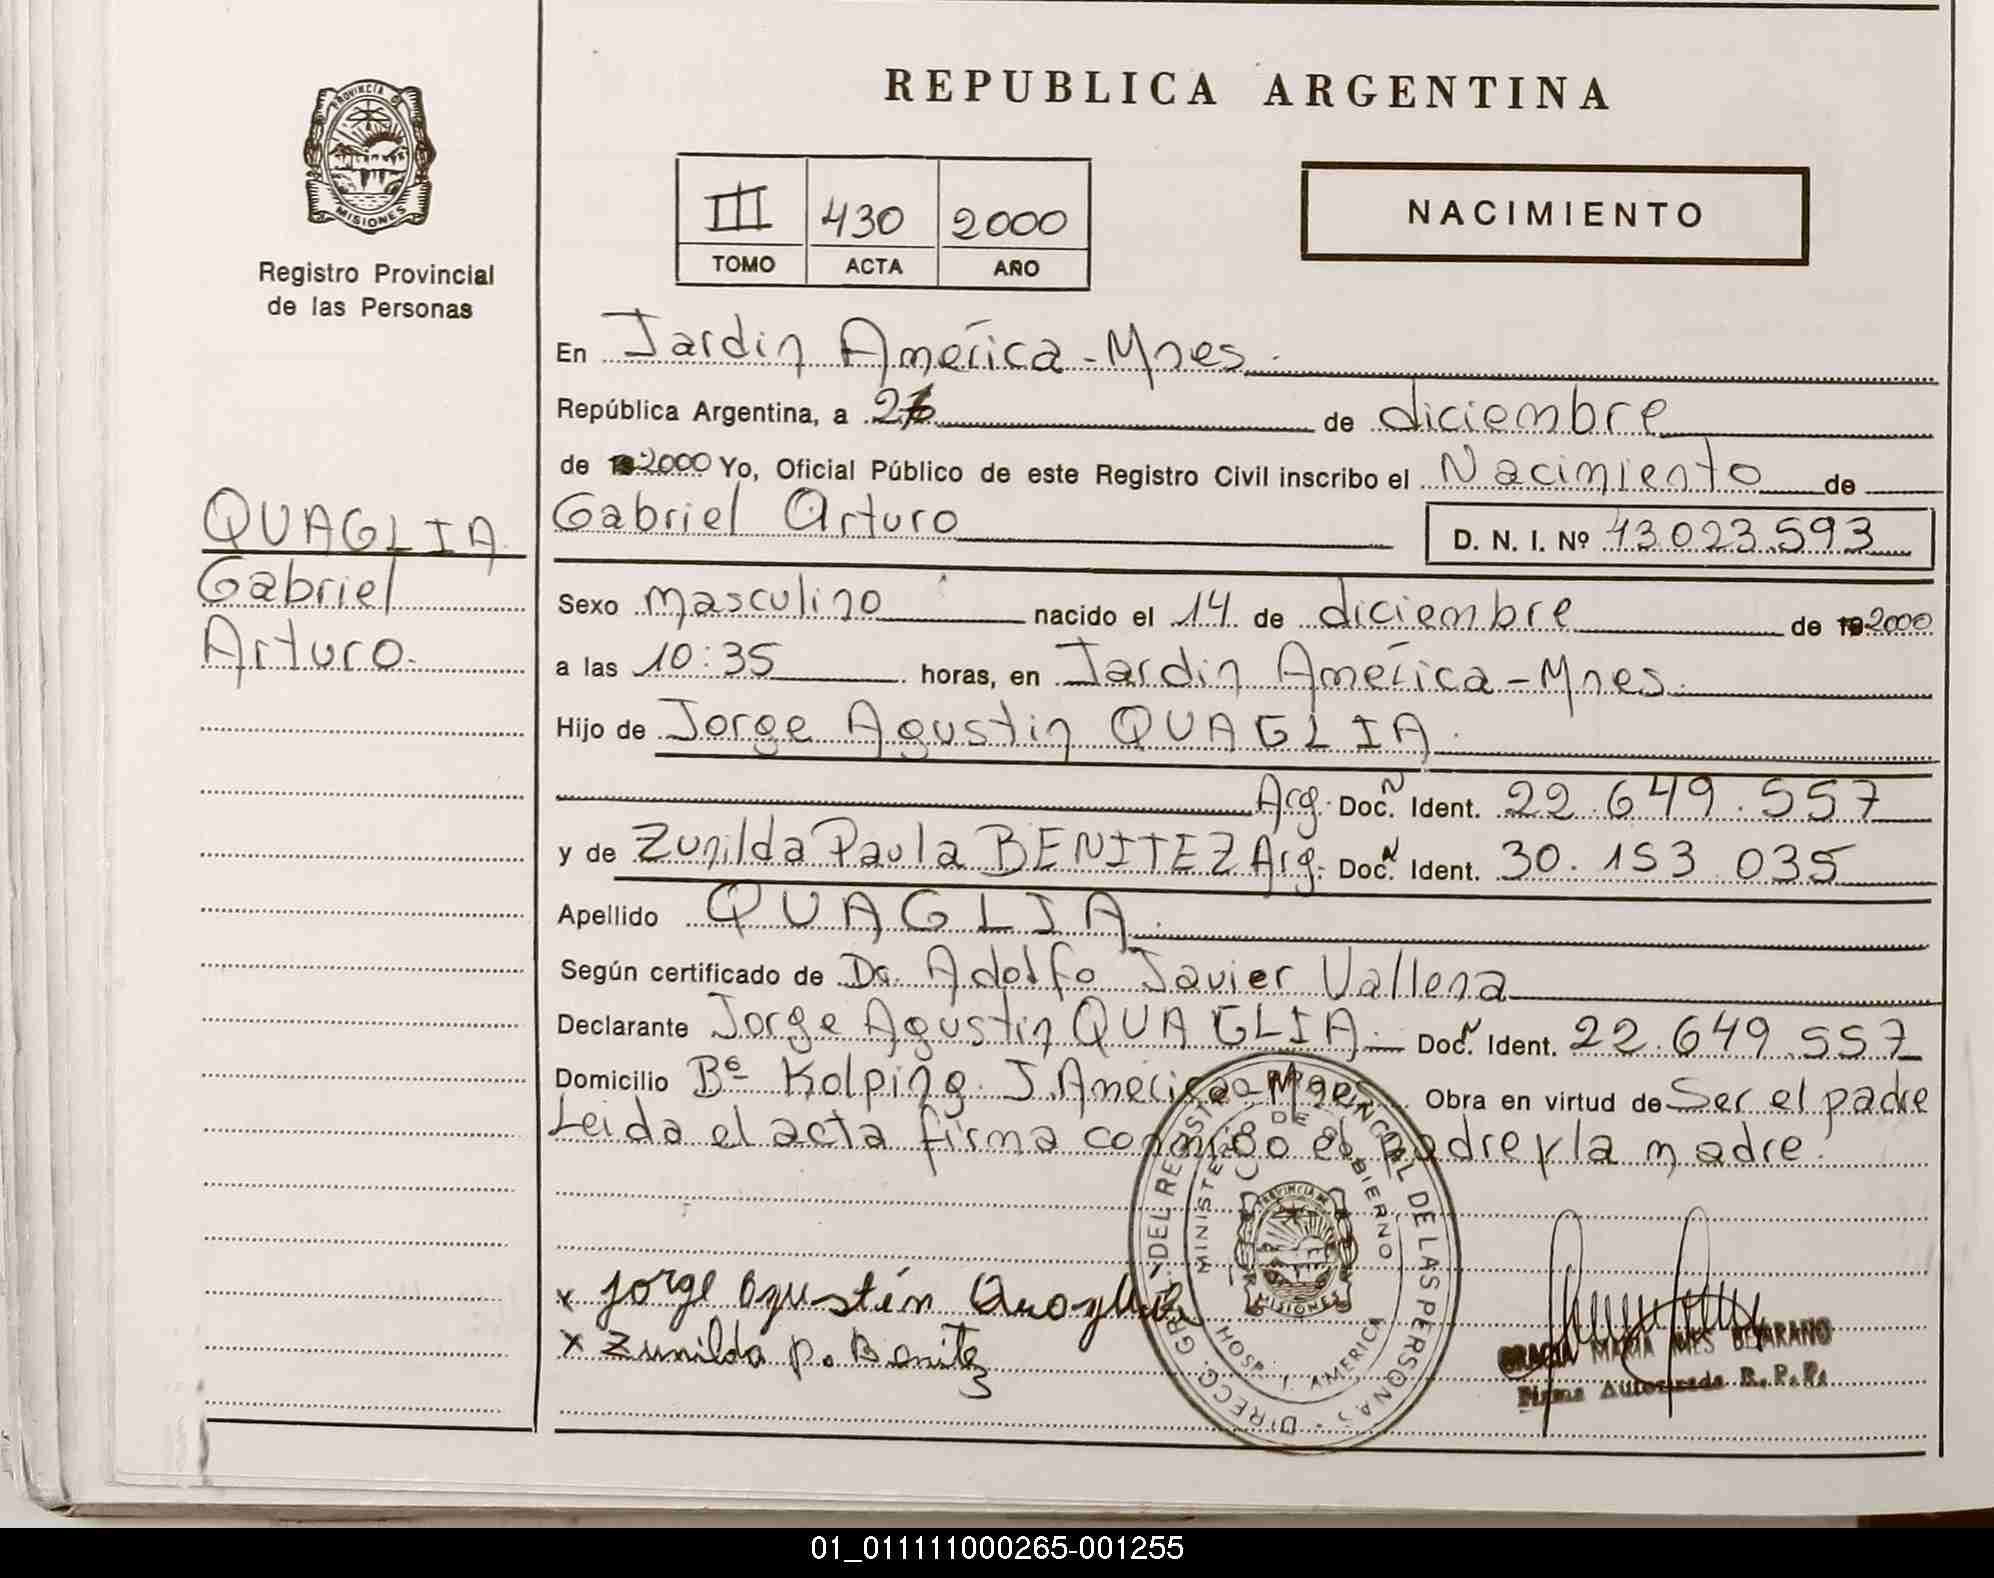 REPUBLICA ARGENTINA
PROVINCIA DE
MISIONES
Registro Provincial
de las Personas
III 430 2000
TOMO ACTA AÑO
NACIMIENTO
En Jardin América - Mnes.
República Argentina, a 26 de diciembre
de 2000 Yo, Oficial Público de este Registro Civil inscribo el Nacimiento de
QUAGLIA
Gabriel
Arturo.
Gabriel Arturo D. N. I. Nº 43.023.593
Sexo masculino nacido el 14 de diciembre de 2000
a las 10:35 horas, en Jardin América - Mnes.
Hijo de Jorge Agustin QUAGLIA.
Arg. Doc. Ident. 22.649.557
y de Zunilda Paula BENITEZ Arg. Doc. Ident. 30.153.035
Apellido QUAGLIA.
Según certificado de Dr. Adolfo Javier Vallena
Declarante Jorge Agustin QUAGLIA. Doc. Ident. 22.649.557
Domicilio Bº Kolping. J. América - Mnes. Obra en virtud de Ser el padre
Leida el acta firma conmigo el padre y la madre.
x Jorge Agustín Quaglia
x Zunilda P. Benitez
DIRECC. GRAL. DEL REGISTRO PROVINCIAL DE LAS PERSONAS
MINISTERIO DE GOBIERNO
PROVINCIA DE
MISIONES
HOSP. J. AMERICA
GRACIA MARIA INES BEJARANO
Firma Autorizada R.P.P.
01_011111000265-001255